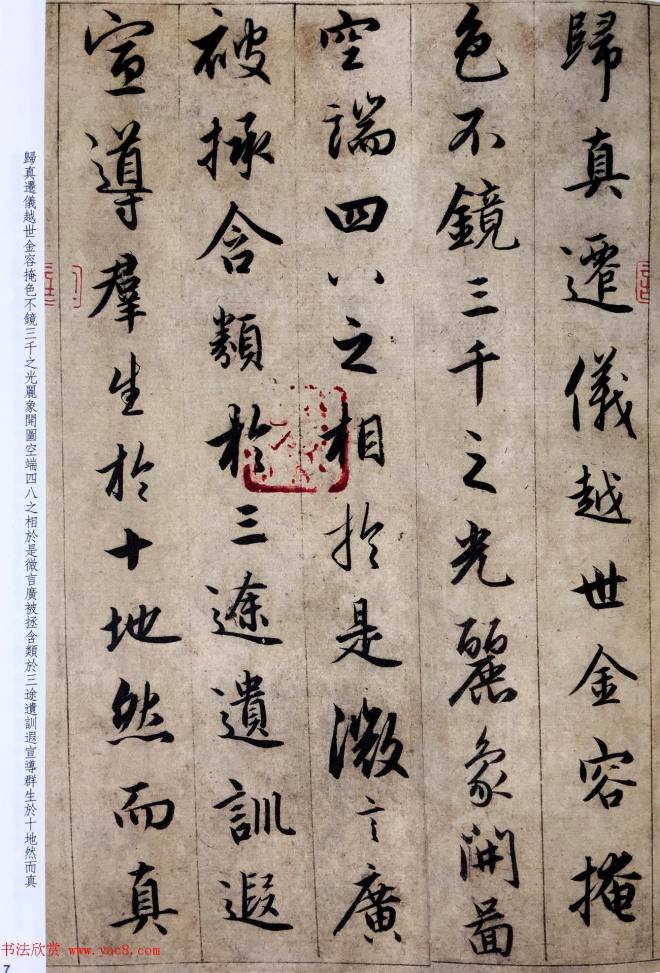 歸真遷儀越世金容掩
色不鏡三千之光麗象開啚
空端四八之相於是微言廣
被拯含類於三途遺訓遐
宣導羣生於十地然而真
歸真遷儀越世金容掩色不鏡三千之光麗象開圖空端四八之相於是微言廣被拯含類於三途遺訓遐宣導群生於十地然而真
书法欣赏 www.yac8.com
7